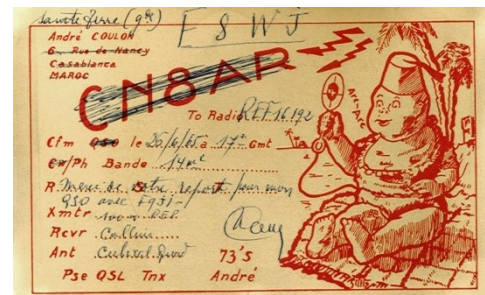 F8WJ
André COULON
6, Rue de Nancy
Casablanca
MAROC
CN8AR
To Radio REF 16192
Arc-Arc
Cfm QSO le 26/6/65 à 17²⁰ Gmt
Cw/Ph Bande 14 mc
R Merci de votre report pour mon
QSO avec
Xmtr 100 w
Rcvr Collins
Ant Cubical Quad
73's
Pse QSL Tnx André